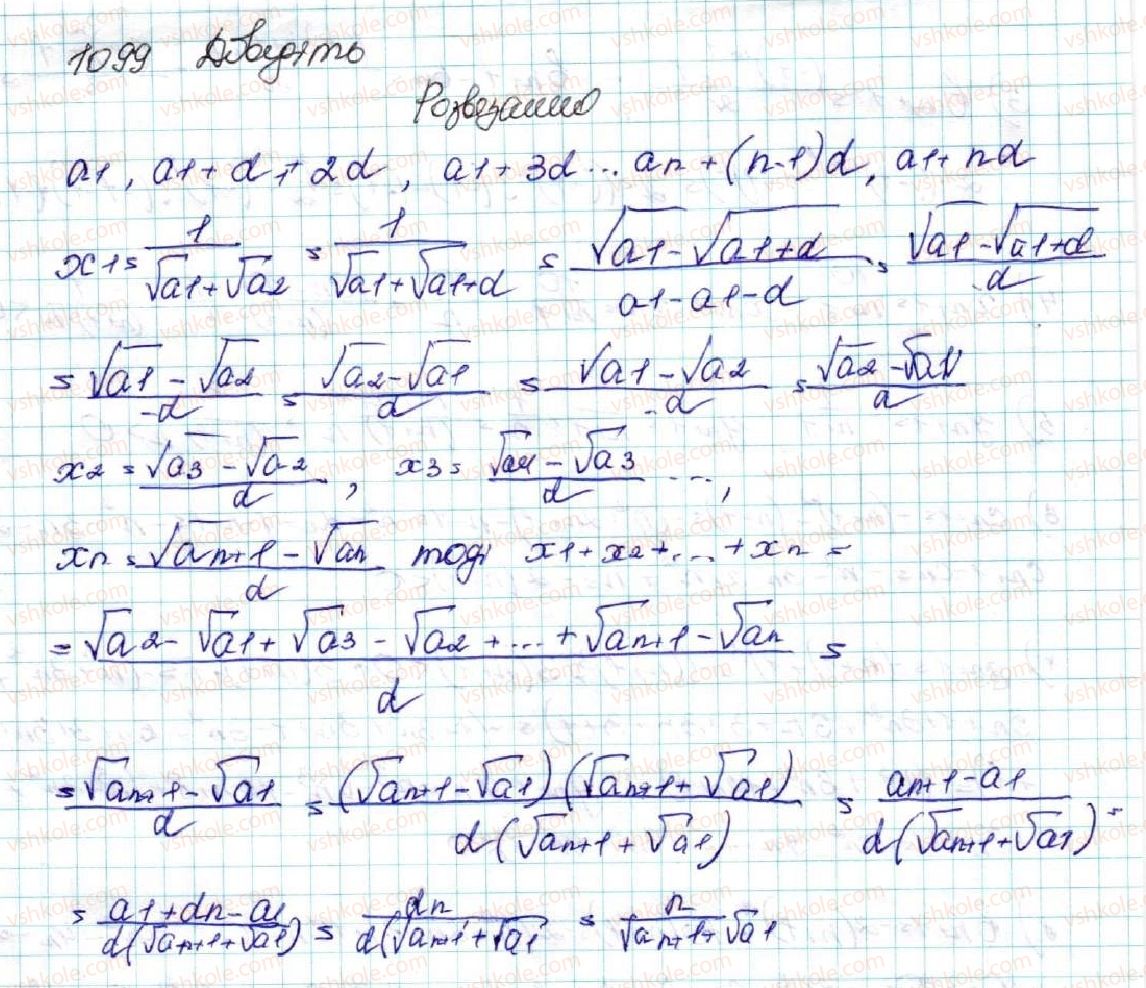 1099 Доведіть
Розвезання
a1, a1+d, +2d, a1+3d...an+(n-1)d, a1+nd
x1=1/(√a1+√a2) = 1/(√a1+√a1+d) = (√a1-√a1+d)/(a1-a1-d) = (√a1-√a1+d)/-d
= (√a1-√a2)/-d = (√a2-√a1)/d = (√a1-√a2)/-d = (√a2-√a1)/d
x2=(√a3-√a2)/d, x3=(√a4-√a3)/d ...,
xn=(√an+1-√an)/d тоді x1+x2+...+xn=
=(√a2-√a1+√a3-√a2+...+√an+1-√an)/d =
=(√an+1-√a1)/d = (√an+1-√a1)(√an+1+√a1)/d(√an+1+√a1) = (an+1-a1)/d(√an+1+√a1) =
=(a1+dn-a1)/d(√an+1+√a1) = dn/d(√an+1+√a1) = n/(√an+1+√a1)
vshkole.com